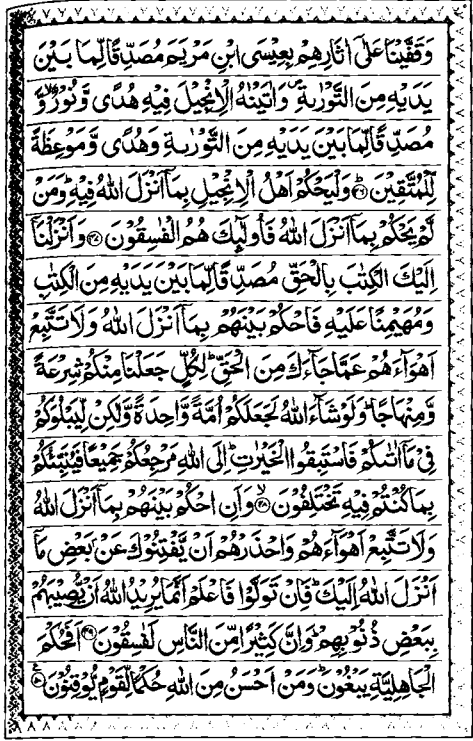 وَقَفَّيْنَا عَلٰٓى اٰثَارِهِمْ بِعِيْسَى ابْنِ مَرْيَمَ مُصَدِّقًا لِّمَا بَيْنَ
يَدَيْهِ مِنَ التَّوْرٰىةِ وَاٰتَيْنٰهُ الْاِنْجِيْلَ فِيْهِ هُدًى وَّنُوْرٌ وَّ
مُصَدِّقًا لِّمَا بَيْنَ يَدَيْهِ مِنَ التَّوْرٰىةِ وَهُدًى وَّمَوْعِظَةً
لِّلْمُتَّقِيْنَ ۴۶ وَلْيَحْكُمْ اَهْلُ الْاِنْجِيْلِ بِمَآ اَنْزَلَ اللّٰهُ فِيْهِ وَمَنْ
لَّمْ يَحْكُمْ بِمَآ اَنْزَلَ اللّٰهُ فَاُولٰٓئِكَ هُمُ الْفٰسِقُوْنَ ۴۷ وَاَنْزَلْنَآ
اِلَيْكَ الْكِتٰبَ بِالْحَقِّ مُصَدِّقًا لِّمَا بَيْنَ يَدَيْهِ مِنَ الْكِتٰبِ
وَمُهَيْمِنًا عَلَيْهِ فَاحْكُمْ بَيْنَهُمْ بِمَآ اَنْزَلَ اللّٰهُ وَلَا تَتَّبِعْ
اَهْوَآءَهُمْ عَمَّا جَآءَكَ مِنَ الْحَقِّ لِكُلٍّ جَعَلْنَا مِنْكُمْ شِرْعَةً
وَّمِنْهَاجًا وَلَوْ شَآءَ اللّٰهُ لَجَعَلَكُمْ اُمَّةً وَّاحِدَةً وَّلٰكِنْ لِّيَبْلُوَكُمْ
فِيْ مَآ اٰتٰىكُمْ فَاسْتَبِقُوا الْخَيْرٰتِ اِلَى اللّٰهِ مَرْجِعُكُمْ جَمِيْعًا فَيُنَبِّئُكُمْ
بِمَا كُنْتُمْ فِيْهِ تَخْتَلِفُوْنَ ۴۸ وَاَنِ احْكُمْ بَيْنَهُمْ بِمَآ اَنْزَلَ اللّٰهُ
وَلَا تَتَّبِعْ اَهْوَآءَهُمْ وَاحْذَرْهُمْ اَنْ يَّفْتِنُوْكَ عَنْۢ بَعْضِ مَآ
اَنْزَلَ اللّٰهُ اِلَيْكَ فَاِنْ تَوَلَّوْا فَاعْلَمْ اَنَّمَا يُرِيْدُ اللّٰهُ اَنْ يُّصِيْبَهُمْ
بِبَعْضِ ذُنُوْبِهِمْ وَاِنَّ كَثِيْرًا مِّنَ النَّاسِ لَفٰسِقُوْنَ ۴۹ اَفَحُكْمَ
الْجَاهِلِيَّةِ يَبْغُوْنَ وَمَنْ اَحْسَنُ مِنَ اللّٰهِ حُكْمًا لِّقَوْمٍ يُّوْقِنُوْنَ ۵۰